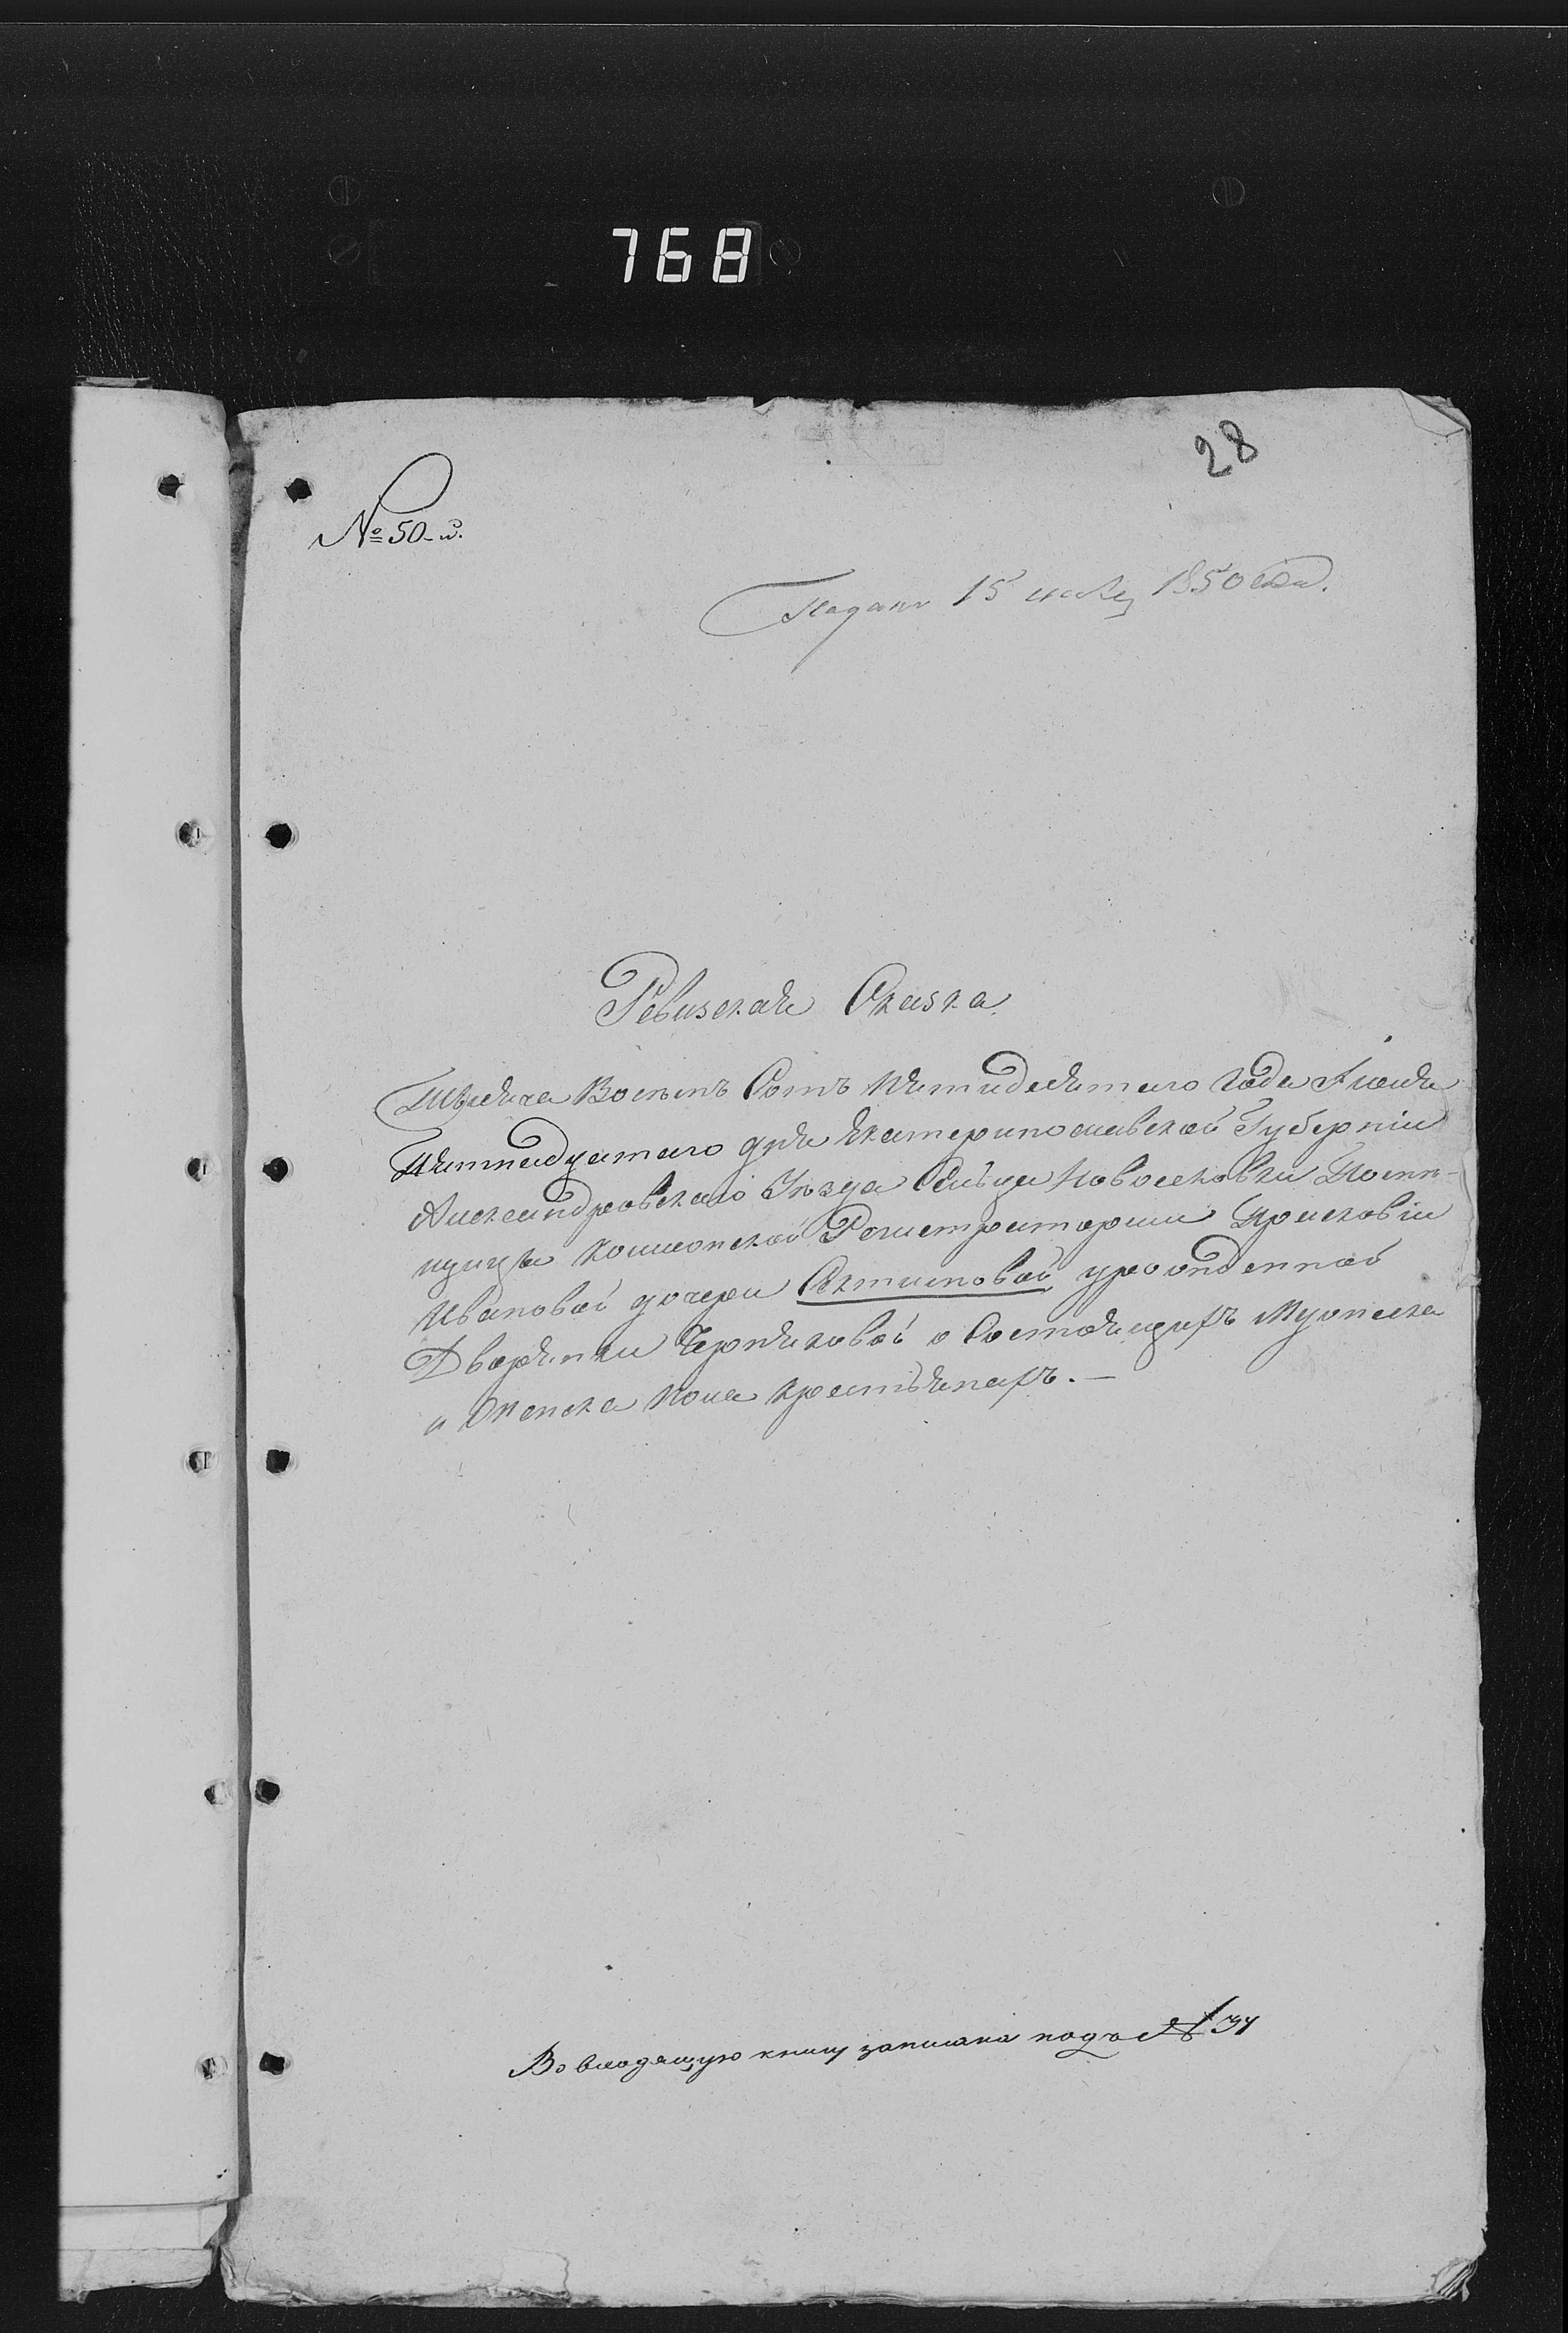 768
28
№ 50-й.
Подана 15 июля 1850 года.
Ревизская Сказка
Тысяча Восемь Сотъ Пятидесятаго Года Июля
Пятнадцатаго дня Екатеринославской Губерніи
Александровскаго Уезда Сельца Новоселовки Поме-
щицы Колежской Регистраторши Просковіи
Ивановой дочери урожденной
Дворянки Черняковой о Состоящихъ Мужеска
и Женска пола Крестьянахъ. —
Во входящую книгу записана подъ № 31